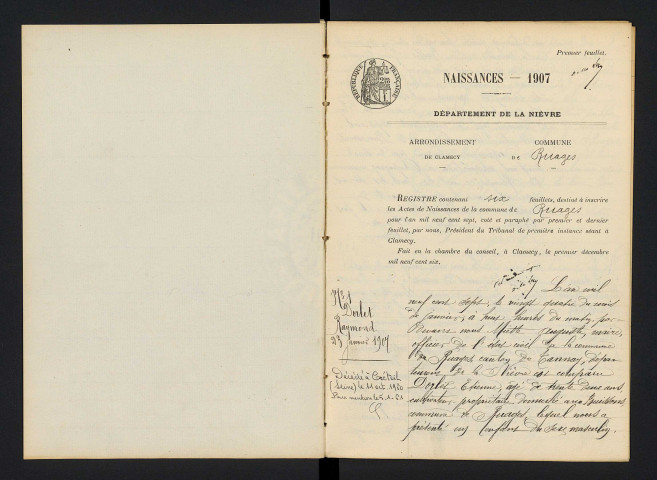 Premier feuillet.
RÉPUBLIQUE FRANÇAISE
NAISSANCES — 1907
DÉPARTEMENT DE LA NIÈVRE
ARRONDISSEMENT COMMUNE
DE CLAMECY DE Ruages
REGISTRE contenant six feuillets, destiné à inscrire
les Actes de Naissances de la commune de Ruages
pour l'an mil neuf cent sept, coté et paraphé par premier et dernier
feuillet, par nous, Président du Tribunal de première instance séant à
Clamecy.
Fait en la chambre du conseil, à Clamecy, le premier décembre
mil neuf cent six.
N° 1
Raymond
23 Janvier 1907
Décédé à Créteil
(Seine) le 11 oct. 1980
L'an mil
neuf cent sept, le vingt quatre du mois
de Janvier, à heures du matin, par
devant nous Auguste, maire,
officier de l'état civil de la commune
de Ruages, canton de Tannay, dépar
tement de la Nièvre est comparu
Etienne, âgé de trente deux ans
cultivateur propriétaire domicilié aux Buissons
commune de Ruages, lequel nous a
présenté un enfant du sexe masculin